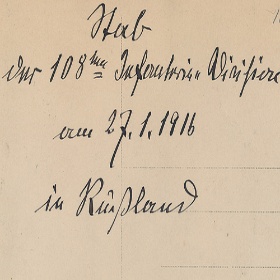 Stab
der 108ten Infanterie-Division
am 27.1.1916
in Rußland